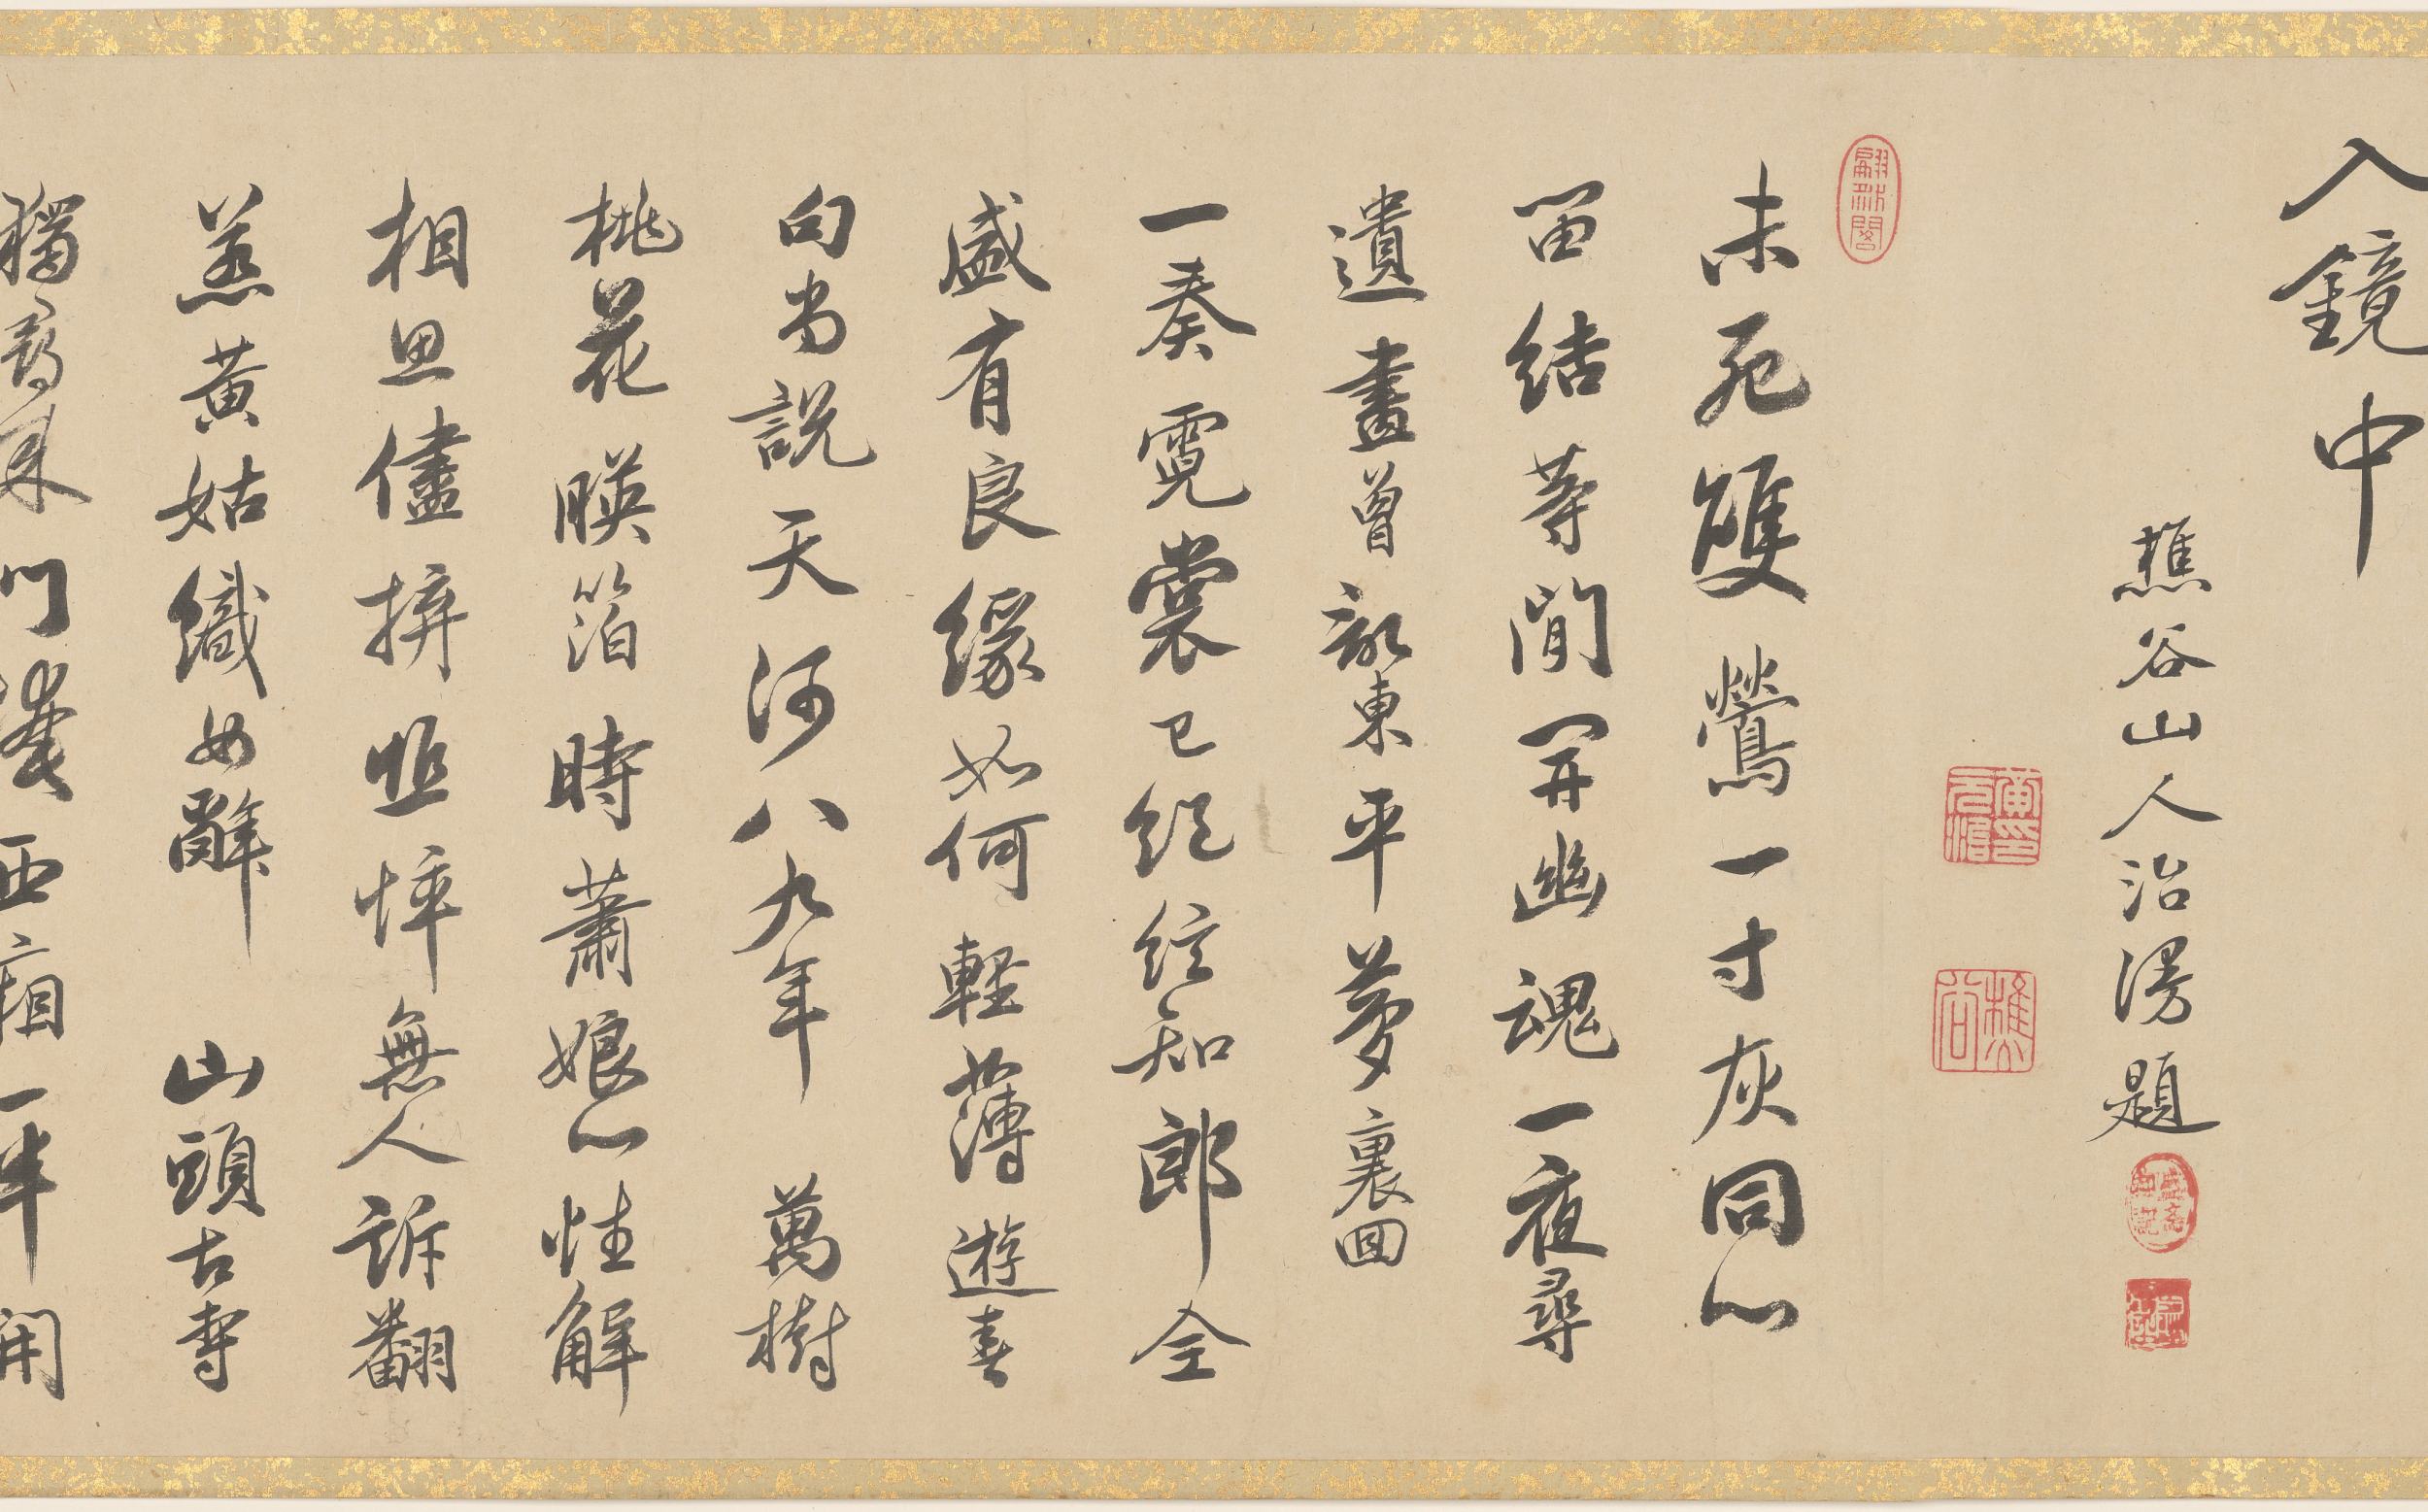 入鏡中
樵谷山人治漫題
未死雙鶯一寸灰同心
留結等閒開幽魂一夜尋
遺畫曾記東平夢裏回
一奏霓裳已經知郎今
盛有良緣如何輕薄遊春
向尚說天河八九年 萬樹
桃花暎箔時蕭娘心性解
相思儘拚無人訴翻
羔黃姑織女辭 山頭古寺
獨尋來門淺西廂一半開